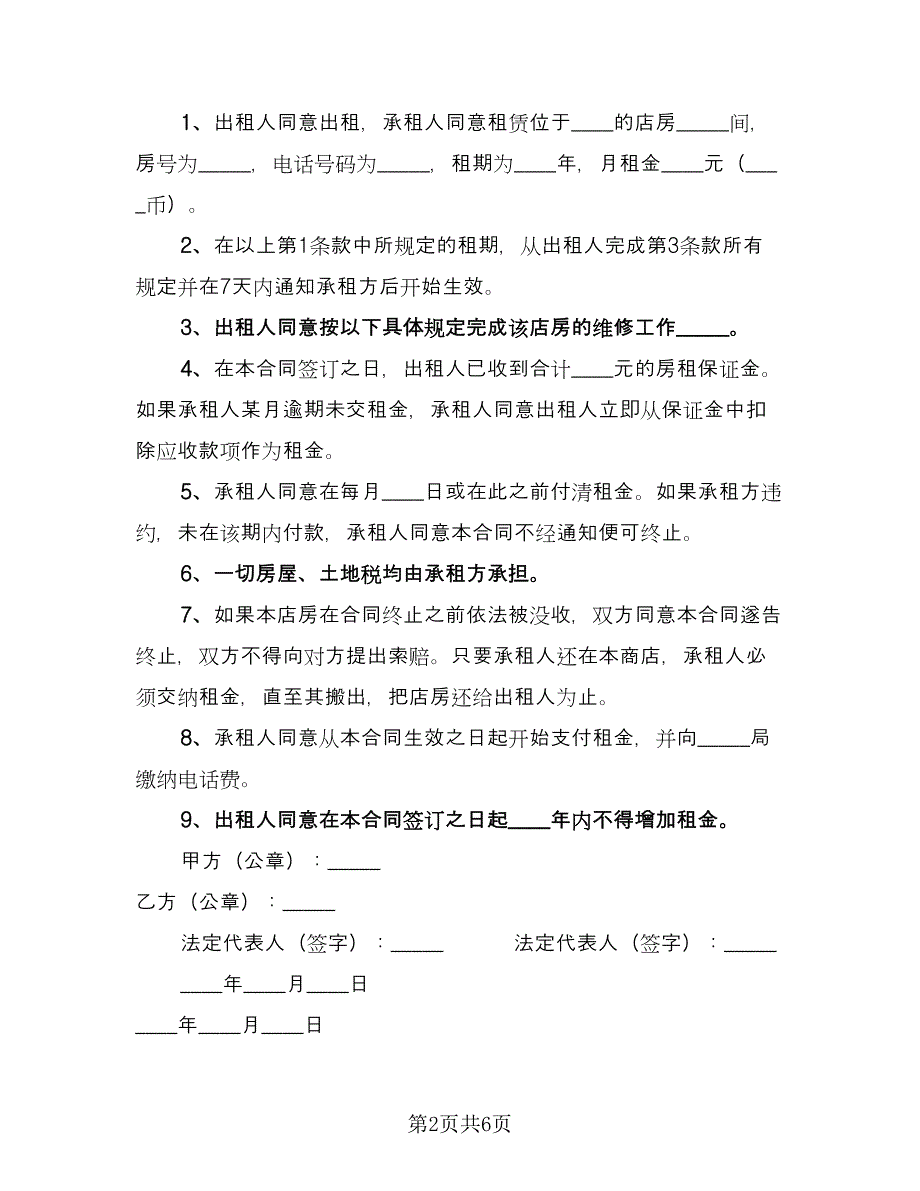 1、出租人同意出租，承租人同意租赁位于____的店房_____间，
房号为_____，电话号码为_____，租期为____年，月租金____元（___
_币）。
2、在以上第1条款中所规定的租期，从出租人完成第3条款所有
规定并在7天内通知承租方后开始生效。
3、出租人同意按以下具体规定完成该店房的维修工作_____。
4、在本合同签订之日，出租人已收到合计____元的房租保证金。
如果承租人某月逾期未交租金，承租人同意出租人立即从保证金中扣
除应收款项作为租金。
5、承租人同意在每月____日或在此之前付清租金。如果承租方违
约，未在该期内付款，承租人同意本合同不经通知便可终止。
6、一切房屋、土地税均由承租方承担。
7、如果本店房在合同终止之前依法被没收，双方同意本合同遂告
终止，双方不得向对方提出索赔。只要承租人还在本商店，承租人必
须交纳租金，直至其搬出，把店房还给出租人为止。
8、承租人同意从本合同生效之日起开始支付租金，并向_____局
缴纳电话费。
9、出租人同意在本合同签订之日起____年内不得增加租金。
甲方（公章）：_____
乙方（公章）：_____
法定代表人（签字）：_____ 法定代表人（签字）：_____
____年____月____日
____年____月____日
第2页共6页